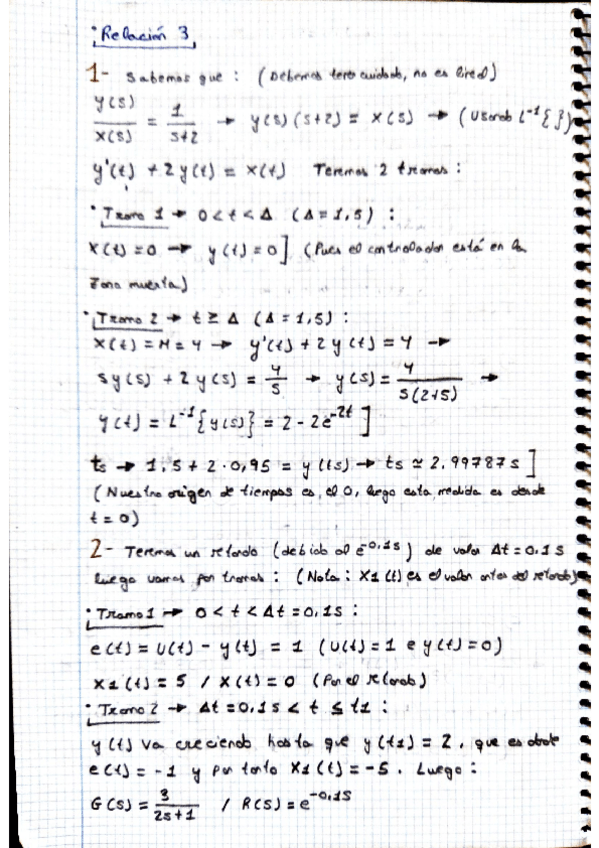 · Relación 3
1- Sabemos que : (Debemos tener cuidado, no es lineal)
y(s)/x(s) = 1/(s+2) → y(s)(s+2) = x(s) → (Usando L⁻¹{ })
y'(t) + 2y(t) = x(t) Tenemos 2 tramos :
· Tramo 1 → 0 < t < Δ (Δ = 1,5) :
x(t) = 0 → y(t) = 0] (Pues el controlador está en la
zona muerta)
· Tramo 2 → t ≥ Δ (Δ = 1,5) :
x(t) = M = 4 → y'(t) + 2y(t) = 4 →
sy(s) + 2y(s) = 4/s → y(s) = 4/(s(2+s)) →
y(t) = L⁻¹{y(s)} = 2 - 2e^-2t ]
ts → 1,5 + 2·0,95 = y(ts) → ts ≃ 2.99787s ]
(Nuestro origen de tiempos es el 0, luego esta medida es desde
t = 0)
2- Tenemos un retardo (debido al e^-0,1s) de valor Δt = 0.1s
luego vamos por tramos : (Nota : X1(t) es el valor antes del retardo)
· Tramo 1 → 0 < t < Δt = 0,1s :
e(t) = U(t) - y(t) = 1 (U(t) = 1 e y(t) = 0)
X1(t) = 5 / X(t) = 0 (Por el retardo)
· Tramo 2 → Δt = 0,1s < t ≤ t1 :
y(t) va creciendo hasta que y(t1) = 2, que es donde
e(t) = -1 y por tanto X1(t) = -5. Luego :
G(s) = 3/(2s+1) / R(s) = e^-0,1s